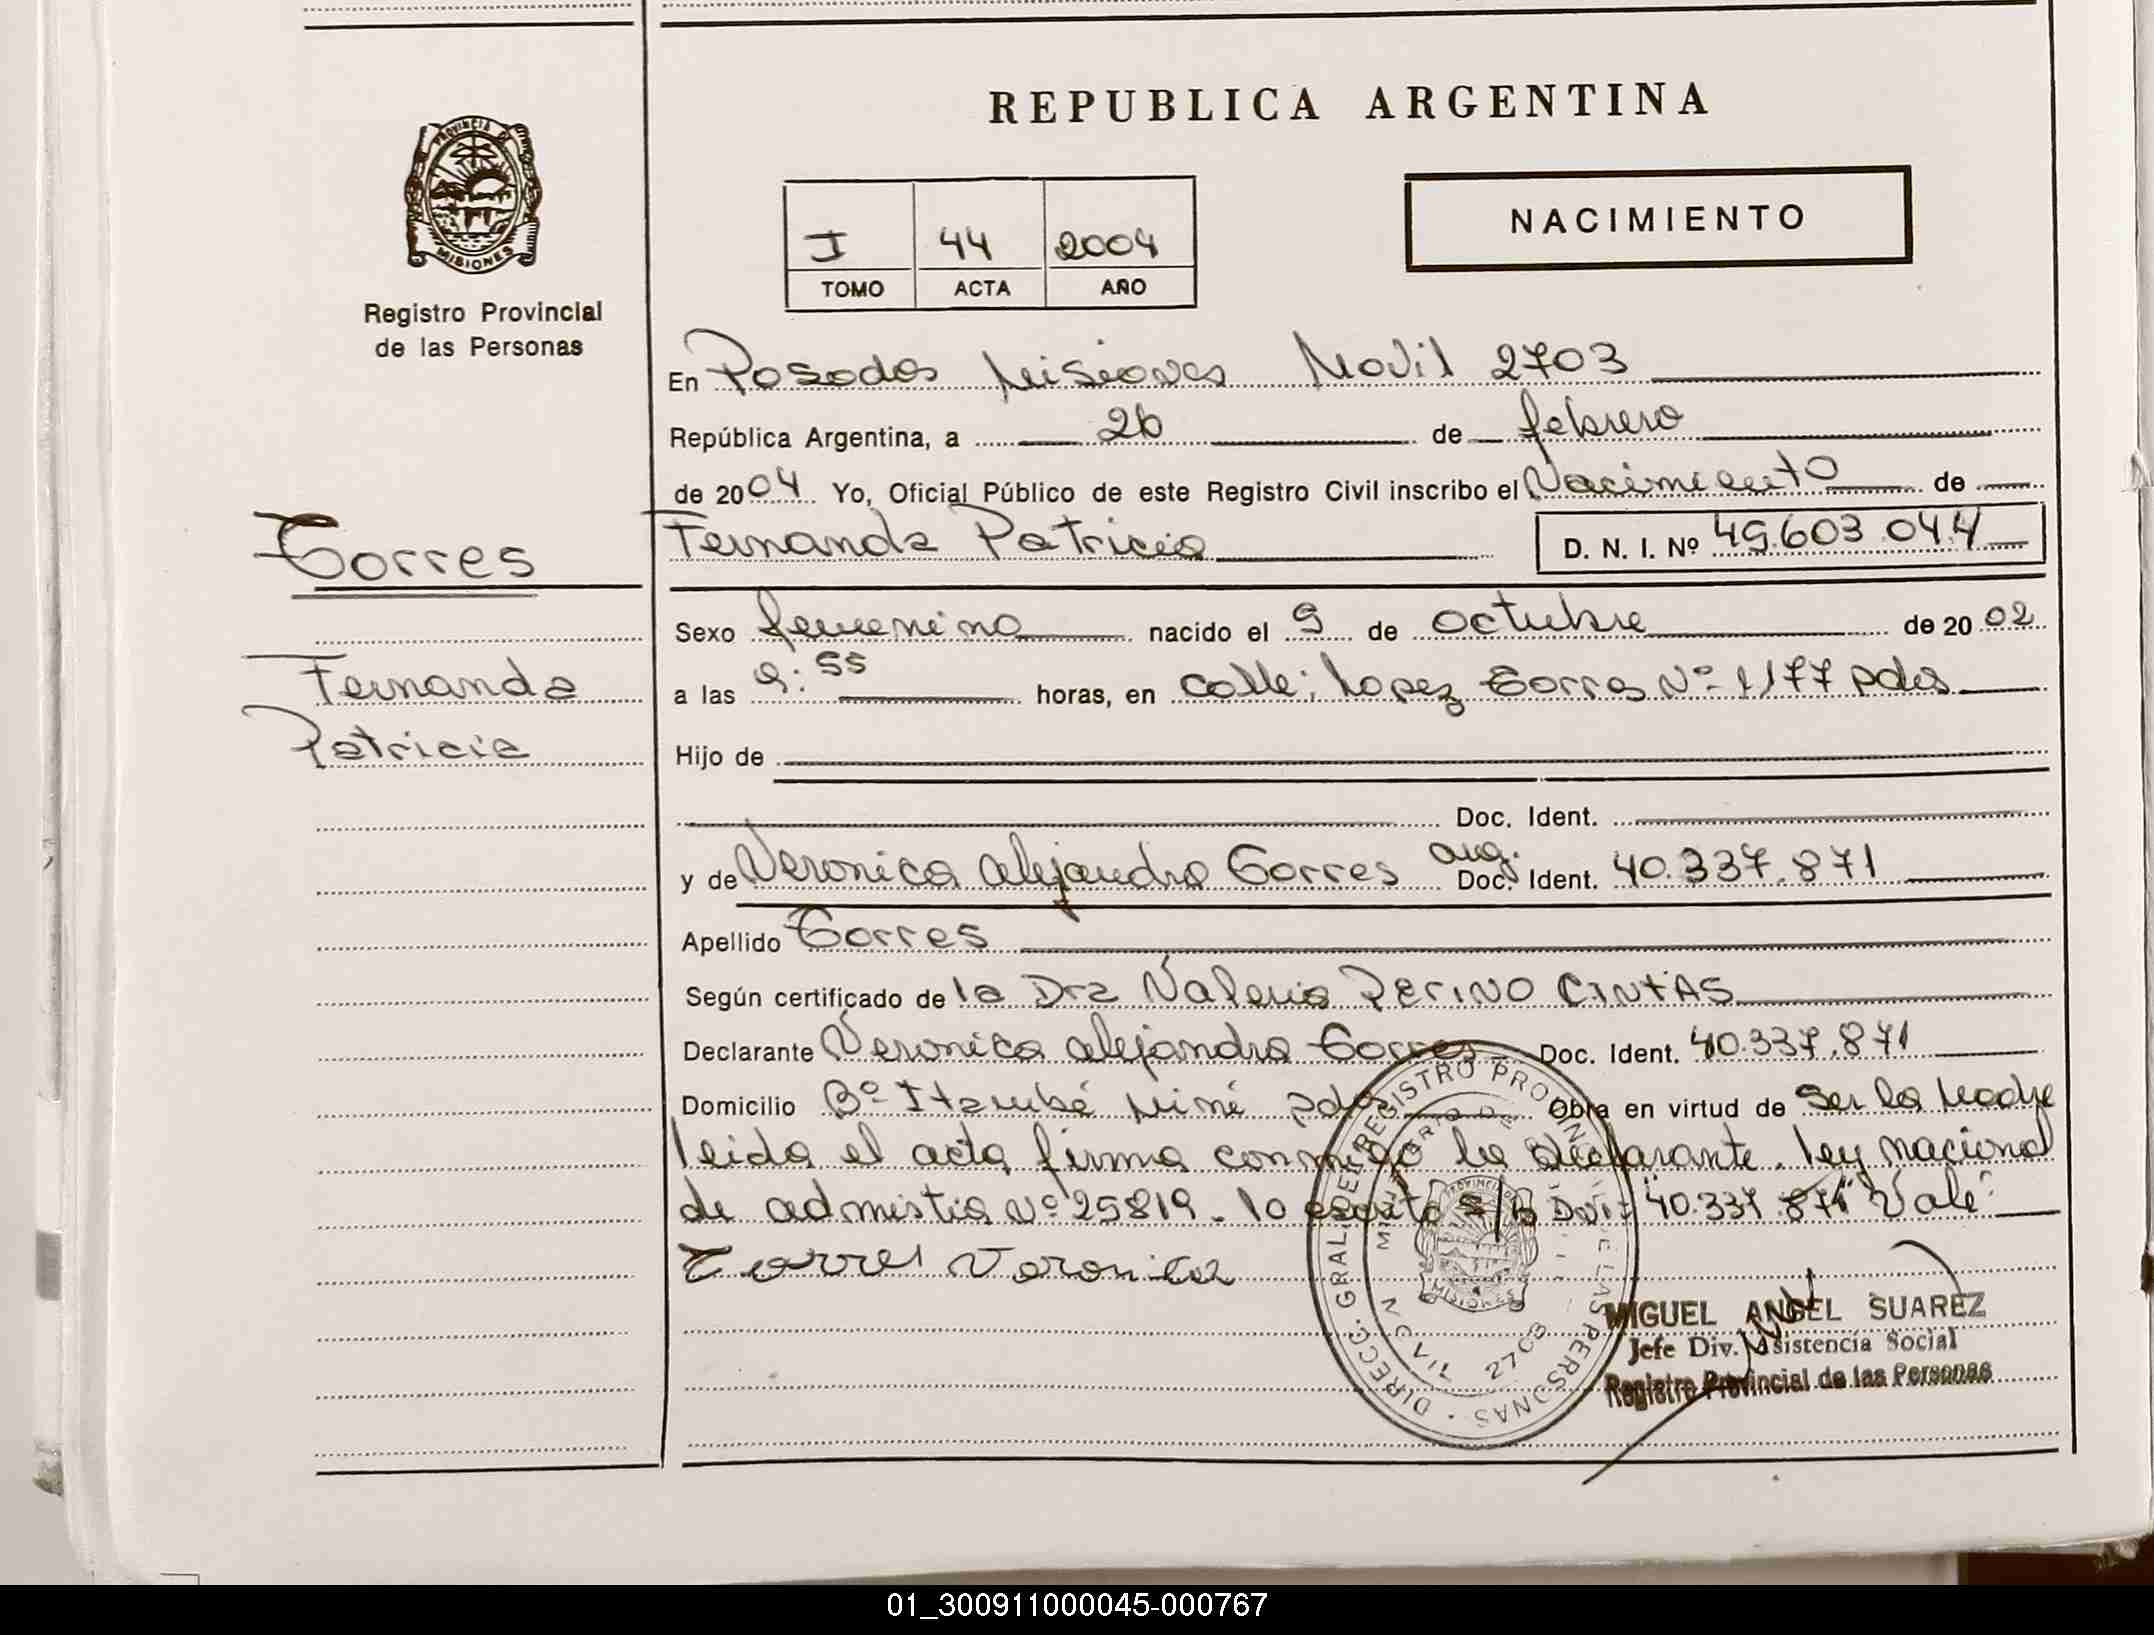 REPUBLICA ARGENTINA
PROVINCIA DE
MISIONES
Registro Provincial
de las Personas
I 44 2004
TOMO ACTA AÑO
NACIMIENTO
En Posadas Misiones Movil 2703
República Argentina, a 26 de febrero
de 2004 Yo, Oficial Público de este Registro Civil inscribo el Nacimiento de
Torres
Fernanda Patricia D. N. I. Nº 49.603.044
Sexo femenino nacido el 9 de octubre de 2002
Fernanda
a las 9:55 horas, en calle: Lopez Torres Nº 1177 pdas
Patricia
Hijo de
Doc. Ident.
y de Veronica alejandra Torres arg. Doc. Ident. 40.337.871
Apellido Torres
Según certificado de la Dra Valeria PERINO CINTAS
Declarante Veronica alejandra Torres Doc. Ident. 40.337.871
Domicilio Bº Itaembé Miní pdas Obra en virtud de Ser la Madre
leida el acta firma conmigo la declarante. ley nacional
de admistia Nº 25819. lo escrito s/b Dni: "40.337.871" Vale
Torres Veronica
DIRECC. GRAL. DEL REGISTRO PROVINCIAL DE LAS PERSONAS
MISIONES
2703
MIGUEL ANGEL SUAREZ
Jefe Div. Asistencia Social
Registro Provincial de las Personas
01_300911000045-000767